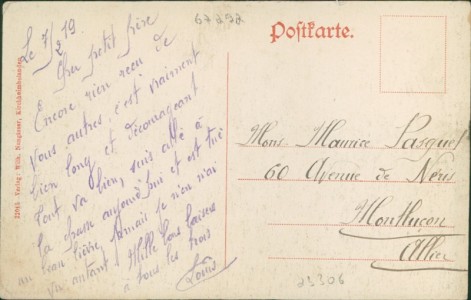 62292
Postkarte.
Le 7/2 19.
Cher petit frère
Encore rien reçu de
vous autres. c'est vraiment
bien long et décourageant
Tout va bien, suis allé à
la chasse aujourd'hui et est tué
un beau lièvre, jamais je n'en n'ai
vu autant! Mille bons baisers
à tous les trois
Louis
Mons. Maurice Pasquet
60 Avenue de Néris
Montluçon
Allier
23306
Verlag: Wilh.